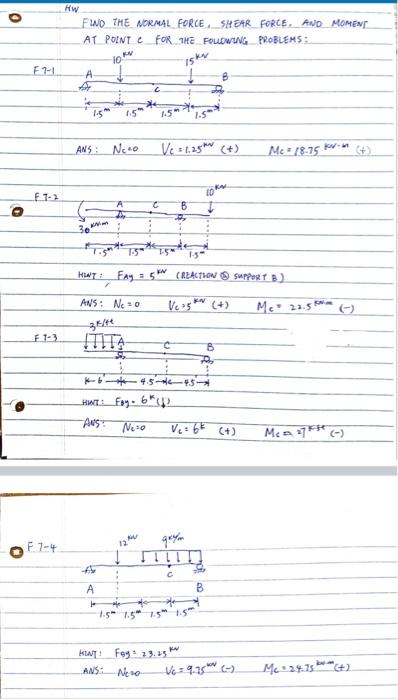 HW
FIND THE NORMAL FORCE, SHEAR FORCE, AND MOMENT
AT POINT C FOR THE FOLLOWING PROBLEMS:
F7-1
10 KN
15 KN
A
C
B
1.5m 1.5m 1.5m 1.5m
ANS: Nc=0 Vc=1.25KN (+) Mc=18.75 KN-m (+)
F7-2
10 KN
A
C
B
30 KN-m
1.5m 1.5m 1.5m 1.5m
HINT: FAy = 5KN (REACTION @ SUPPORT B)
ANS: Nc=0 Vc=5KN (+) Mc= 22.5KN-m (-)
F7-3
3K/ft
A
C
B
6' 4.5' 4.5'
HINT: FBy = 6K(↓)
ANS: Nc=0 Vc=6K (+) Mc=27K-ft (-)
F7-4
12 KN
9KN/m
C
A
B
1.5m 1.5m 1.5m 1.5m
HINT: FBy = 23.25 KN
ANS: Nc=0 Vc=9.75KN (-) Mc=24.75 KN-m (+)